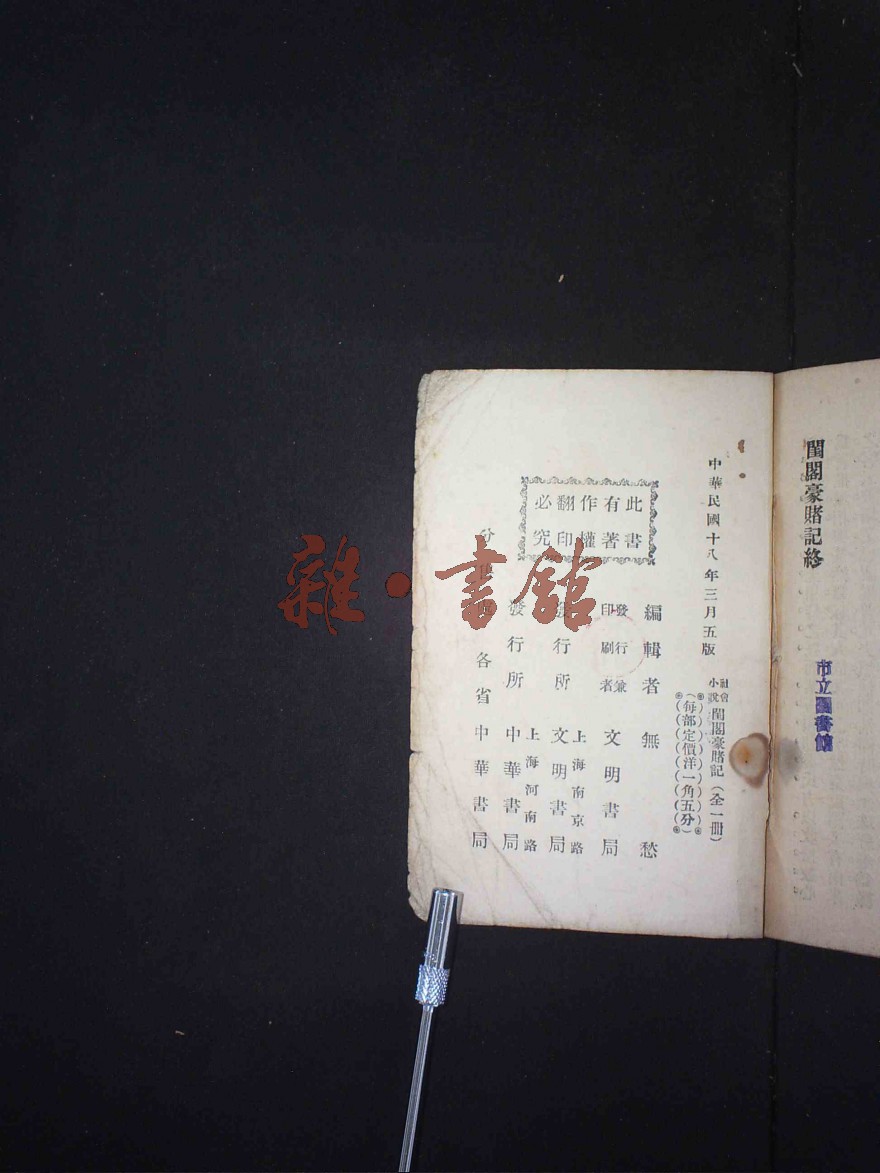 閨閣豪賭記終
市立圖書館
中華民國十八年三月五版
社會小說 閨閣豪賭記（全一冊）
（每部定價洋一角五分）
此書
有著
作權
翻印
必究
編輯者 無愁
發行兼印刷者 文明書局
上海南京路
發行所 文明書局
上海河南路
發行所 中華書局
分 各省中華書局
雜·書館